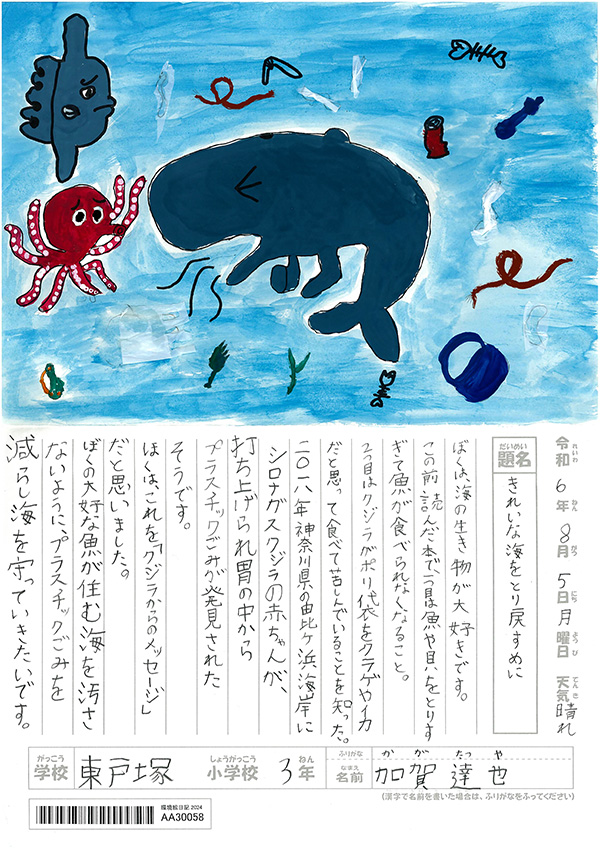 令和6年8月5日月曜日 天気 晴れ
れいわ ねん がつ にち ようび てんき
だいめい
題名 きれいな海をとり戻すめに
ぼくは、海の生き物が大好きです。
この前、読んだ本で、一つは魚や貝をとりす
ぎて魚が食べられなくなること。
2つ目はクジラがポリ代衣をクラゲやイカ
だと思って食べて苦しんでいることを知った。
二〇一八年神奈川県の由比ヶ浜海岸に
シロナガスクジラの赤ちゃんが、
打ち上げられ胃の中から
プラスチックごみが発見された
そうです。
ほくは、これを「クジラからのメッセージ」
だと思いました。
ぼくの大好な魚が住む海を汚さ
ないように、プラスチックごみを
減らし海を守っていきたいです。
がっこう しょうがっこう ねん ふりがな かがたつや
学校 東戸塚 小学校 3年 なまえ 名前 加賀達也
(漢字で名前を書いた場合は、ふりがなをふってください)
環境絵日記2024
AA30058